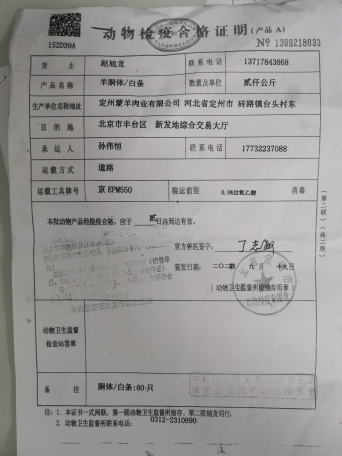 动物检疫合格证明(产品A)
152D39A
№ 1309218033
货主 赵旭龙 联系电话 13717843668
产品名称 羊胴体/白条 数量及单位 贰仟公斤
生产单位名称地址 定州蒙羊肉业有限公司 河北省定州市 砖路镇台头村东
目的地 北京市丰台区 新发地综合交易大厅
承运人 孙伟恒 联系电话 17732237088
运载方式 道路
运载工具牌号 京EPM550 装运前经 0.5%过氧乙酸 消毒
本批动物产品经检疫合格,应于 日内到达有效。
官方兽医签字:
签发日期: 年 月 日
(动物卫生监督所检疫专用章)
动物卫生监督
检查站签章
备注 胴体/白条:80-只
(第二联)(共二联)
注:1. 本证书一式两联,第一联动物卫生监督所留存,第二联随货同行.
2. 动物卫生监督所联系电话: 0312-2310890